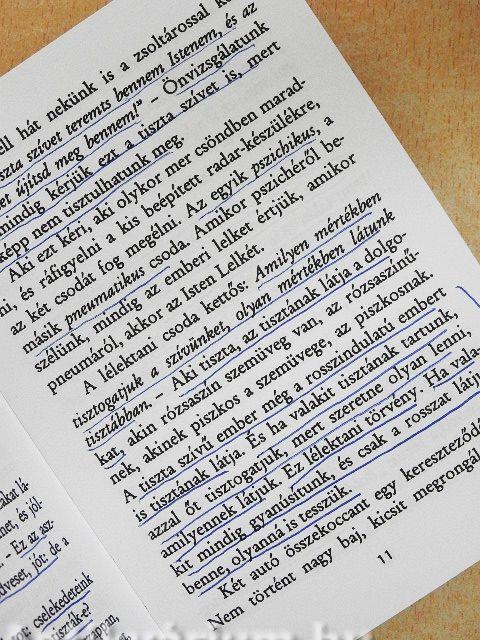 ell hát nekünk is a zsoltárossal
szta szívet teremts bennem Istenem, és az
et újítsd meg bennem!" – Önvizsgálatunk
mindig kérjük ezt a tiszta szívet is, mert
képp nem tisztulhatunk meg.
Aki ezt kéri, aki olykor mer csöndben marad-
ni, és ráfigyelni a kis beépített radar-készülékre,
az két csodát fog megélni. Az egyik pszichikus, a
másik pneumatikus csoda. Amikor pszichéről be-
szélünk, mindig az emberi lelket értjük, amikor
pneumáról, akkor az Isten Lelkét.
A lélektani csoda kettős: Amilyen mértékben
tisztogatjuk a szívünket, olyan mértékben látunk
tisztábban. – Aki tiszta, az tisztának látja a dolgo-
kat, akin rózsaszín szemüveg van, az rózsaszínű-
nek, akinek piszkos a szemüvege, az piszkosnak.
A tiszta szívű ember még a rosszindulatú embert
is tisztának látja. És ha valakit tisztának tartunk,
azzal őt tisztogatjuk, mert szeretne olyan lenni,
amilyennek látjuk. Ez lélektani törvény. Ha vala-
kit mindig gyanúsítunk, és csak a rosszat látju
benne, olyanná is tesszük.
Két autó összekoccant egy kereszteződé
Nem történt nagy baj, kicsit megrongál
11
zakat lá-
net, és jól-
– Ez az asz-
edveset, jót: de a
cselekedeteink
zappan,